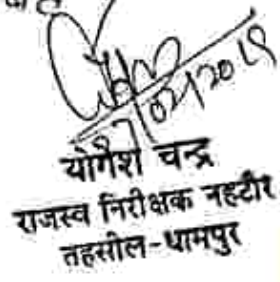 /02/2019
योगेश चन्द्र
राजस्व निरीक्षक नहटौर
तहसील-धामपुर